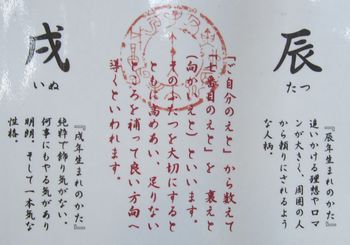 辰
たつ
『辰年生まれのかた』
追いかける理想やロマ
ンが大きく、周囲の人
から頼りにされるよう
な人柄。
「ご自分のえと」から数えて
「七番目のえと」を 裏えと
(向かいえと)といいます。
そのふたつを大切にすると
ともに高めあい、足りない
ところを補って良い方向へ
導くといわれます。
戌
いぬ
『戌年生まれのかた』
純粋で飾り気がない。
何事にもやる気があり
明朗、そして一本気な
性格。